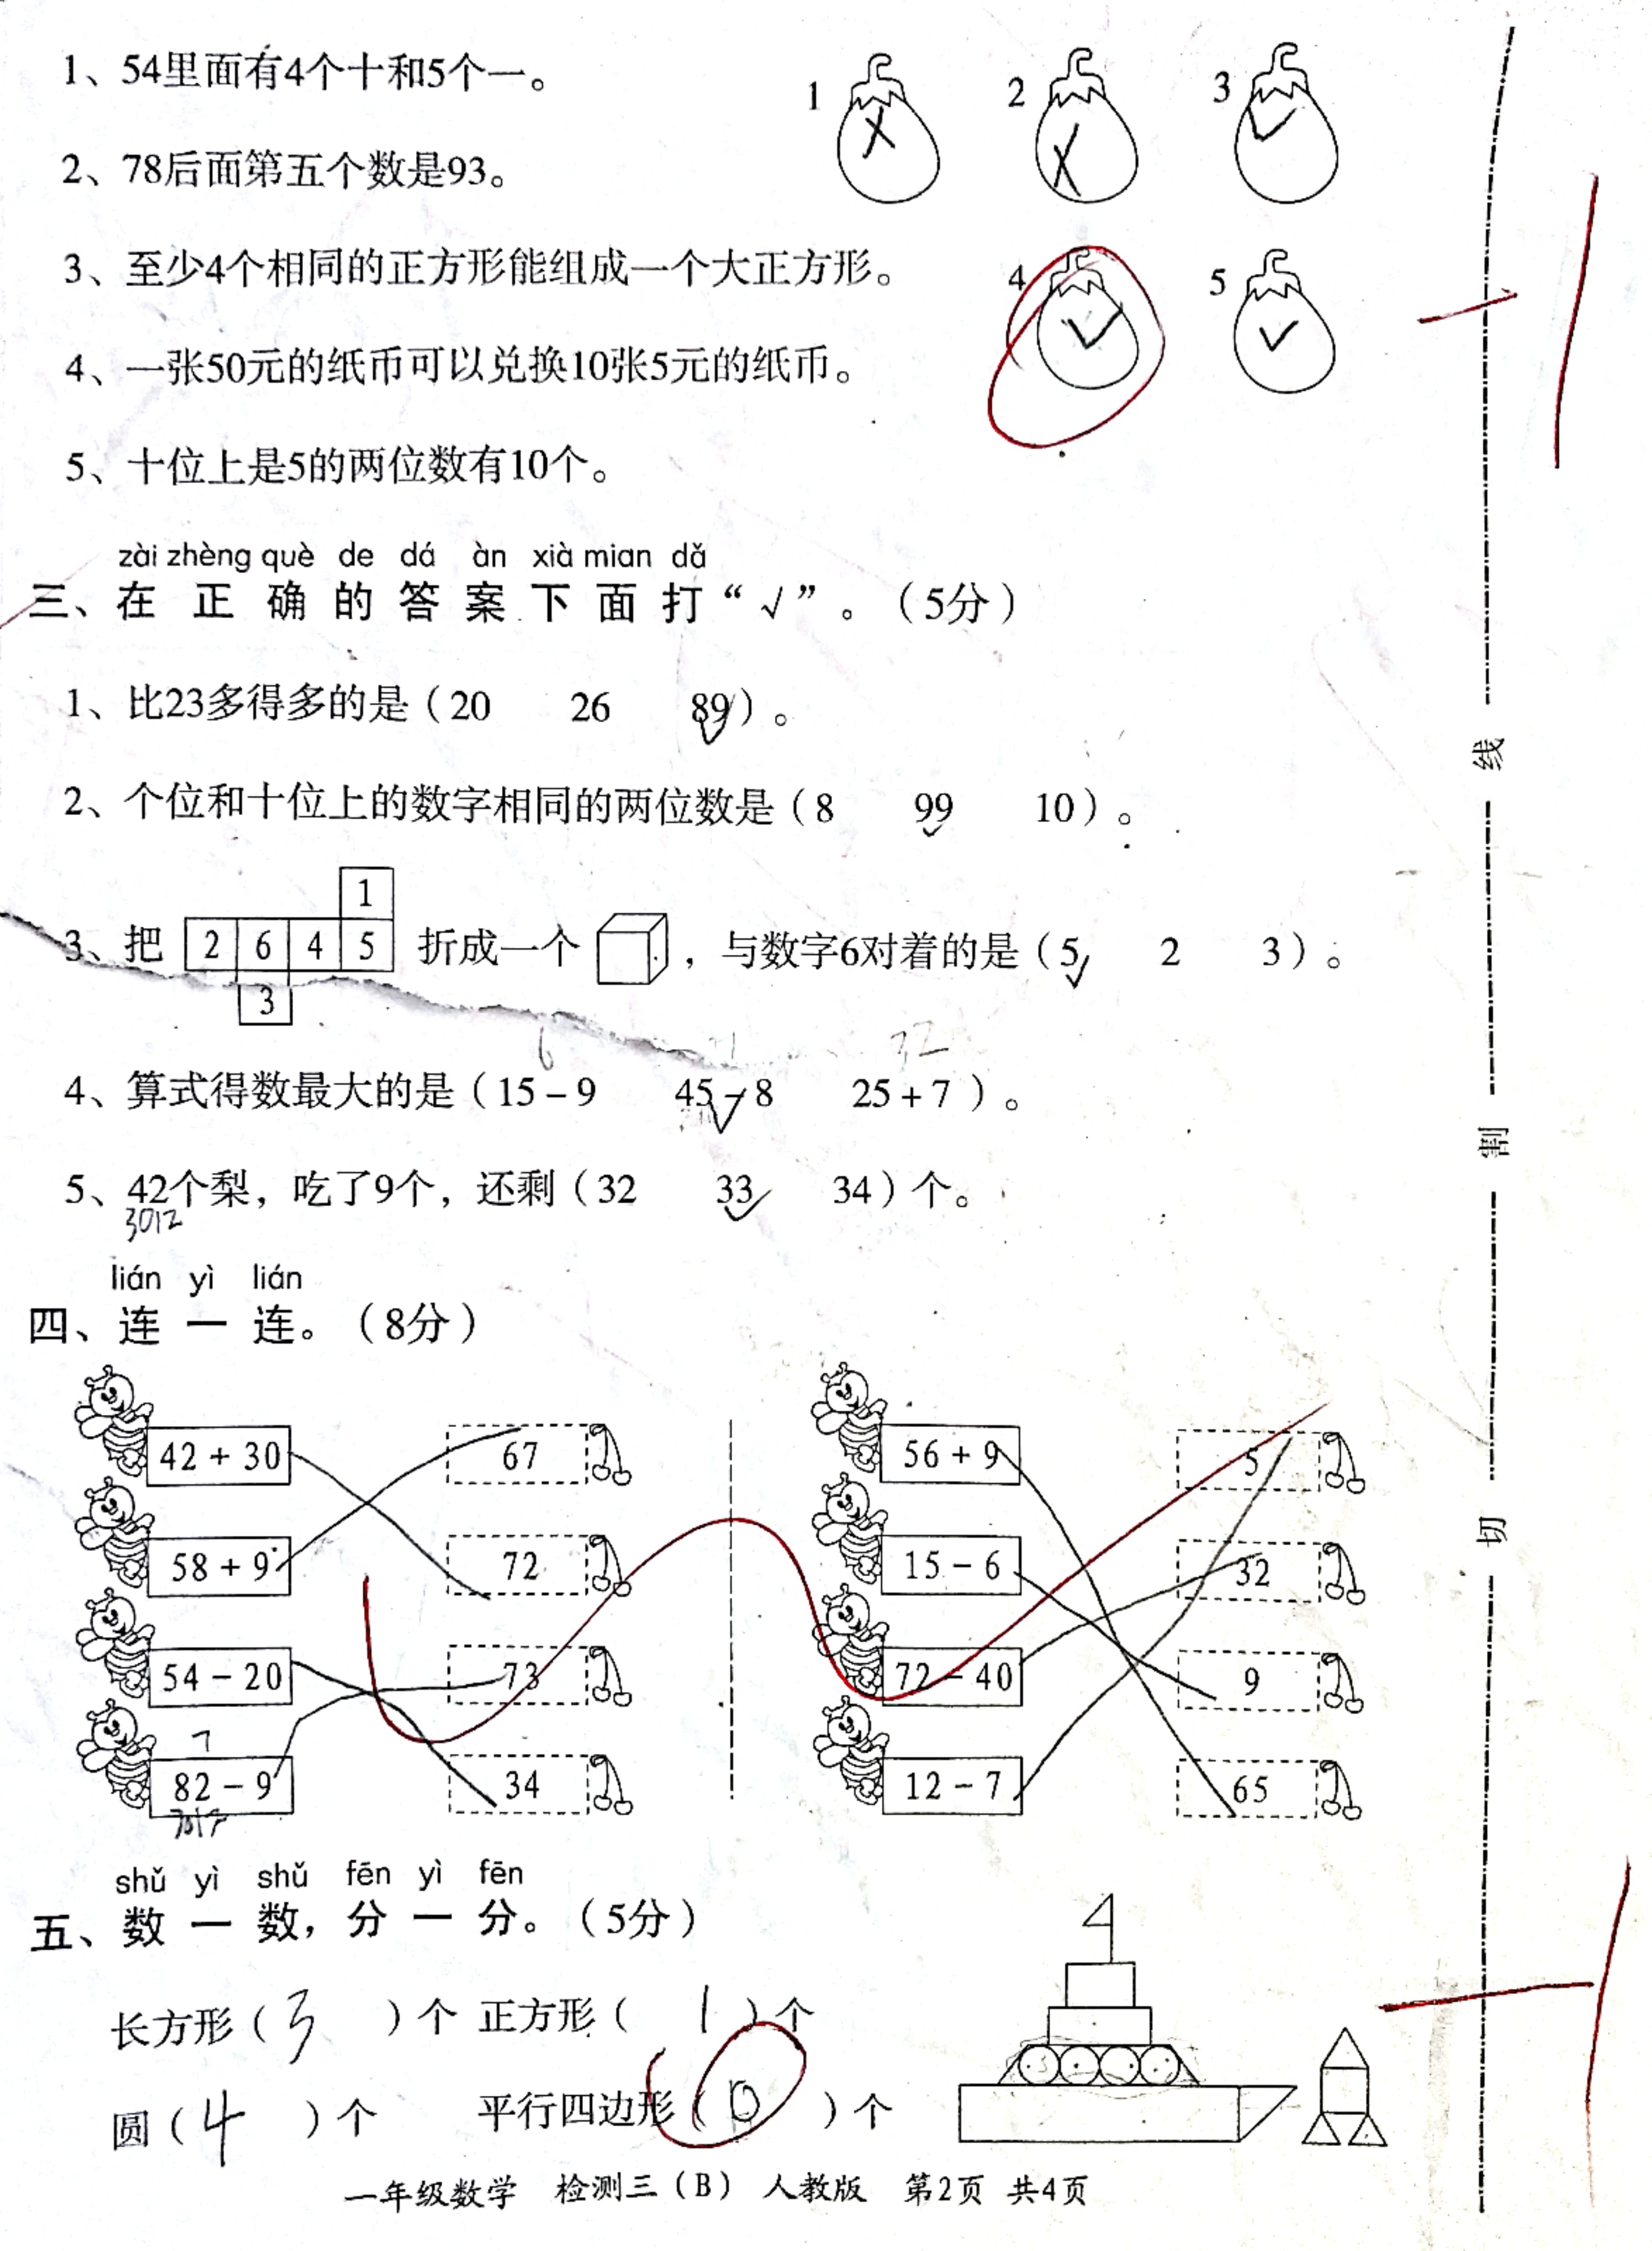 1、54里面有4个十和5个一。
1 X 2 X 3 √
2、78后面第五个数是93。
3、至少4个相同的正方形能组成一个大正方形。
4 √ 5 √
4、一张50元的纸币可以兑换10张5元的纸币。
5、十位上是5的两位数有10个。
zài zhèng què de dá àn xià mian dǎ
三、在正确的答案下面打“√”。（5分）
1、比23多得多的是（20 26 89）。
√
2、个位和十位上的数字相同的两位数是（8 99 10）。
√
1
3、把 2 6 4 5 折成一个 ，与数字6对着的是（5 2 3）。
√
3
6 32
4、算式得数最大的是（15－9 45－8 25＋7）。
√
5、42个梨，吃了9个，还剩（32 33 34）个。
3012 √
lián yì lián
四、连一连。（8分）
42 + 30 67 56 + 9 5
58 + 9 72 15 － 6 32
54 － 20 73 72 － 40 9
7
82 － 9 34 12 － 7 65
shǔ yì shǔ fēn yì fēn
五、数一数，分一分。（5分）
长方形（3）个 正方形（1）个
圆（4）个 平行四边形（0）个
一年级数学 检测三（B） 人教版 第2页 共4页
线
割
切
-1
-1